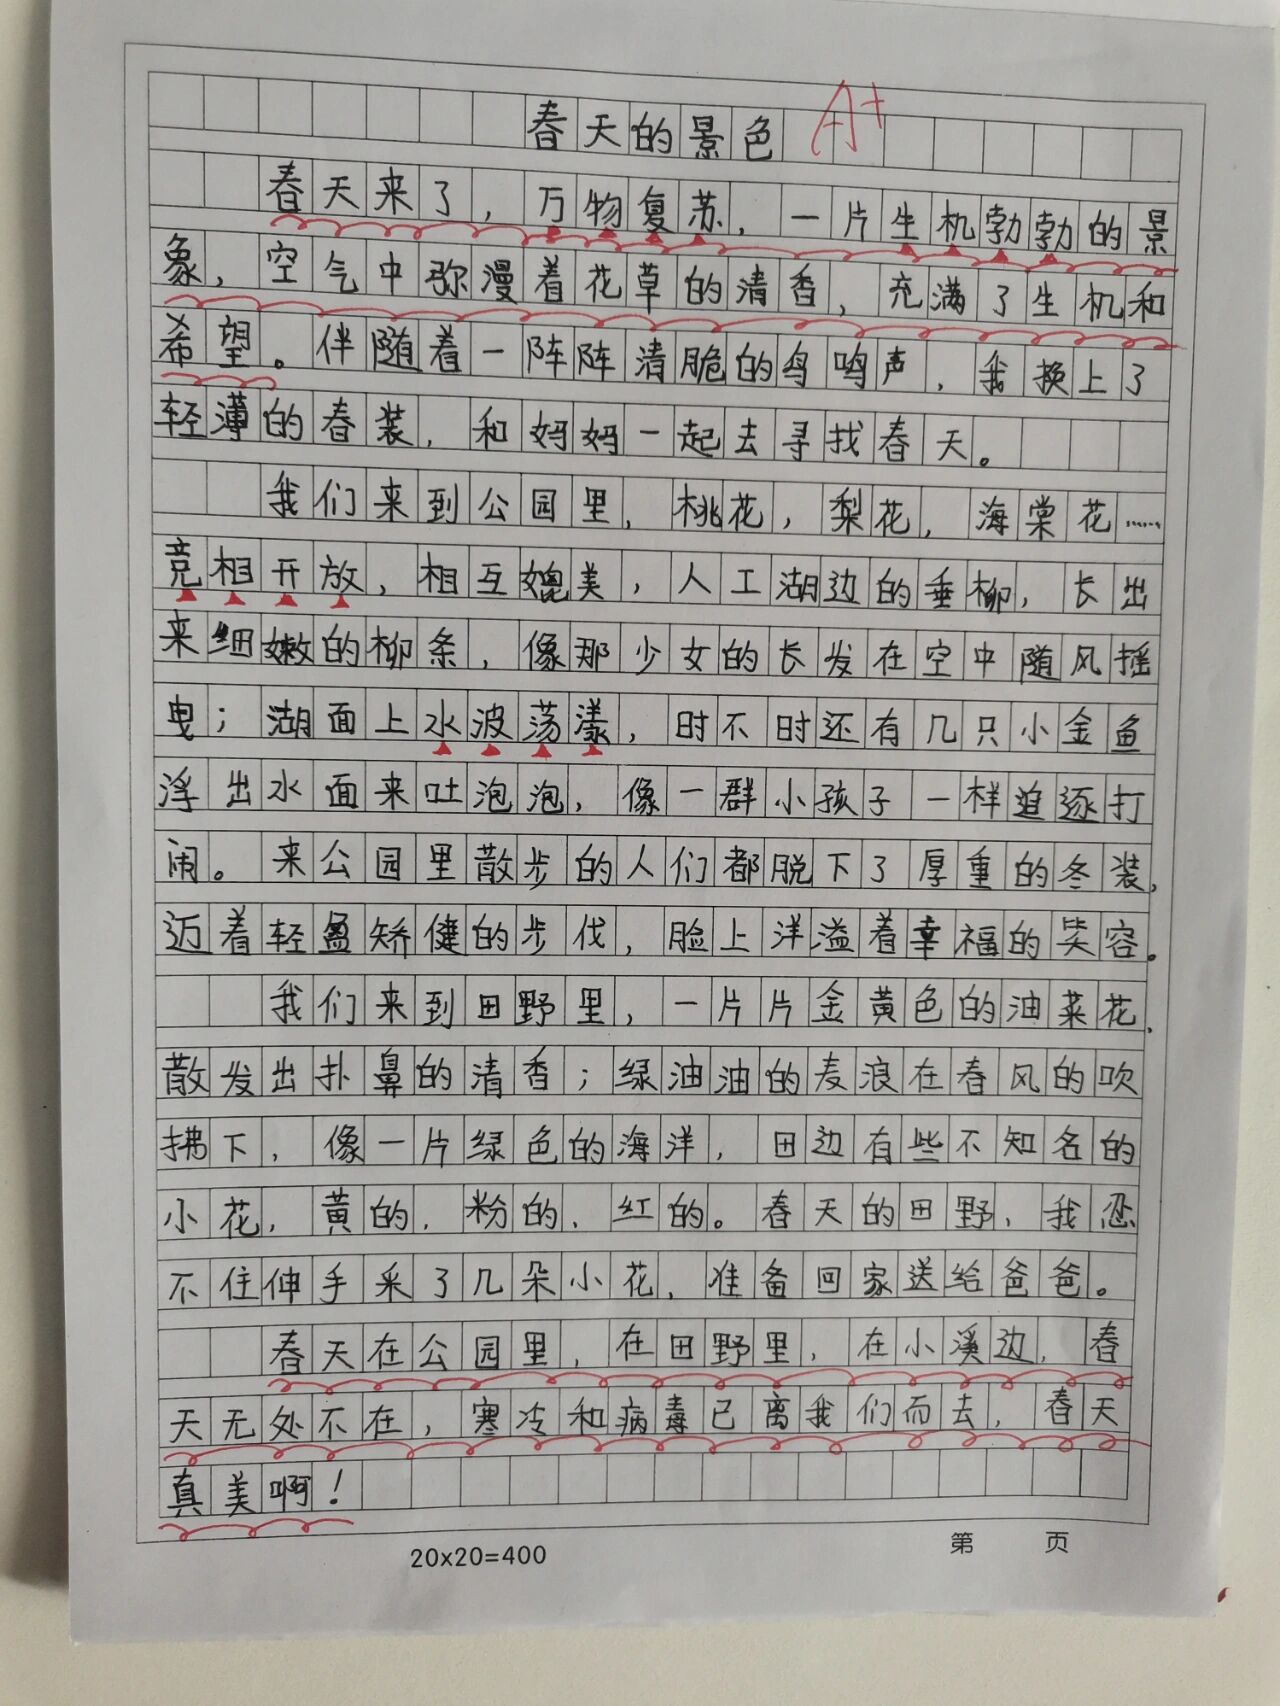 春天的景色 A+
春天来了，万物复苏，一片生机勃勃的景
象，空气中弥漫着花草的清香，充满了生机和
希望。伴随着一阵阵清脆的鸟鸣声，我换上了
轻薄的春装，和妈妈一起去寻找春天。
我们来到公园里，桃花，梨花，海棠花……
竞相开放，相互媲美，人工湖边的垂柳，长出
来细嫩的柳条，像那少女的长发在空中随风摇
曳；湖面上水波荡漾，时不时还有几只小金鱼
浮出水面来吐泡泡，像一群小孩子一样追逐打
闹。来公园里散步的人们都脱下了厚重的冬装，
迈着轻盈矫健的步伐，脸上洋溢着幸福的笑容。
我们来到田野里，一片片金黄色的油菜花，
散发出扑鼻的清香；绿油油的麦浪在春风的吹
拂下，像一片绿色的海洋，田边有些不知名的
小花，黄的，粉的，红的。春天的田野，我忍
不住伸手采了几朵小花，准备回家送给爸爸。
春天在公园里，在田野里，在小溪边，春
天无处不在，寒冷和病毒已离我们而去，春天
真美啊！
20×20=400 第 页